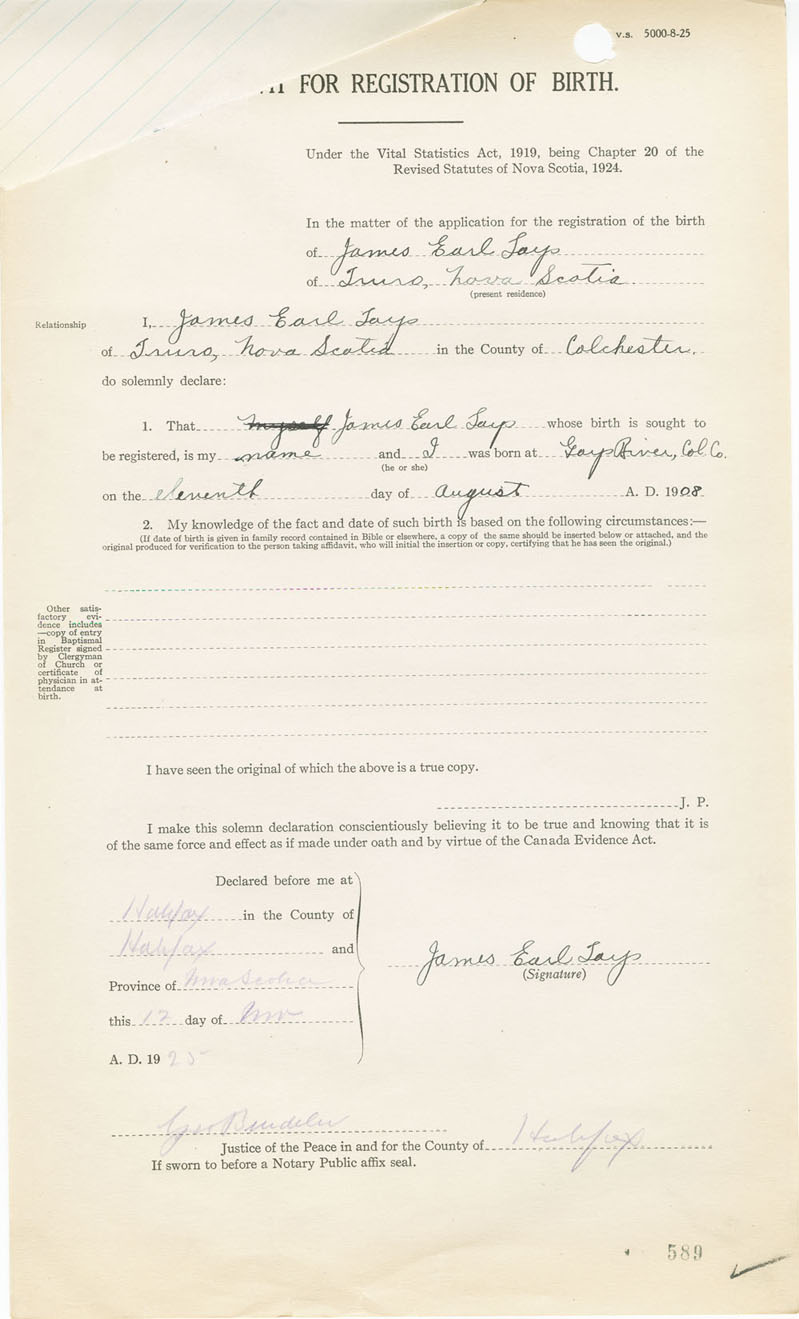 v.s. 5000-8-25
FOR REGISTRATION OF BIRTH.
Under the Vital Statistics Act, 1919, being Chapter 20 of the
Revised Statutes of Nova Scotia, 1924.
In the matter of the application for the registration of the birth
of James Earl Tays
of Truro, Nova Scotia
(present residence)
Relationship
I, James Earl Tays
of Truro, Nova Scotia in the County of Colchester.
do solemnly declare:
1. That myself James Earl Tays whose birth is sought to
be registered, is my name and I was born at Gays River, Col. Co.
(he or she)
on the eleventh day of August A. D. 1908
2. My knowledge of the fact and date of such birth is based on the following circumstances:—
(If date of birth is given in family record contained in Bible or elsewhere, a copy of the same should be inserted below or attached, and the
original produced for verification to the person taking affidavit, who will initial the insertion or copy, certifying that he has seen the original.)
Other satis-
factory evi-
dence includes
—copy of entry
in Baptismal
Register signed
by Clergyman
of Church or
certificate of
physician in at-
tendance at
birth.
I have seen the original of which the above is a true copy.
J. P.
I make this solemn declaration conscientiously believing it to be true and knowing that it is
of the same force and effect as if made under oath and by virtue of the Canada Evidence Act.
Declared before me at
Halifax in the County of
Halifax and
Province of Nova Scotia
this 12 day of Nov
A. D. 1925
James Earl Tays
(Signature)
Geo
Justice of the Peace in and for the County of Halifax
If sworn to before a Notary Public affix seal.
589